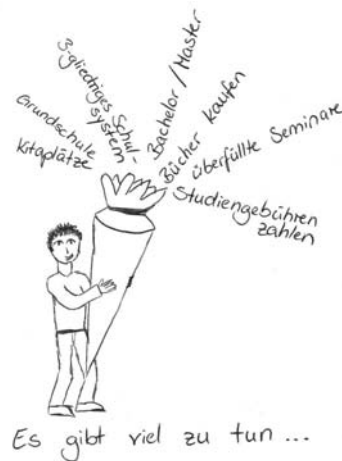 Grundschule
Kitaplätze
3-gliedriges Schul-
system
Bachelor/Master
Bücher kaufen
überfüllte Seminare
Studiengebühren
zahlen
Es gibt viel zu tun ...